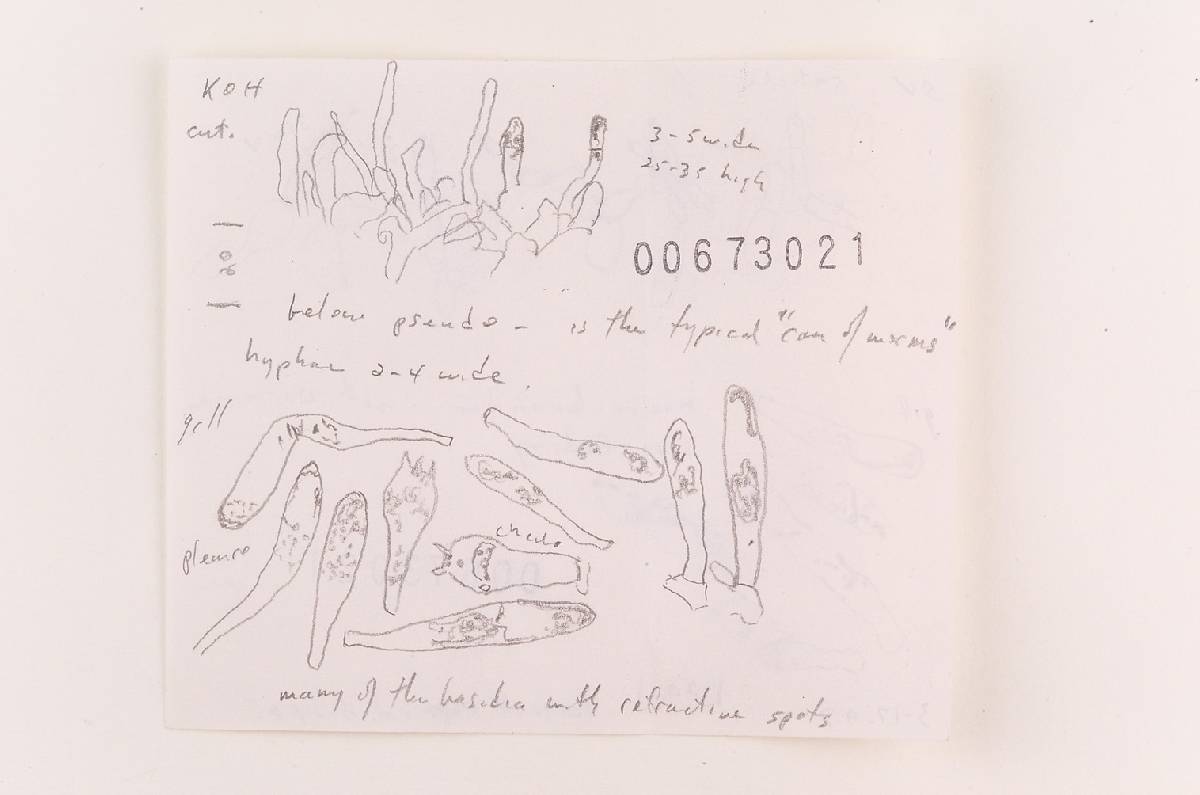 KOH
cut.
3-5 wide
25-35 high
00673021
below pseudo - is the typical "can of worms"
hyphae 2-4 wide.
gill
pleuro
cheilo
many of the basidia with refractive spots